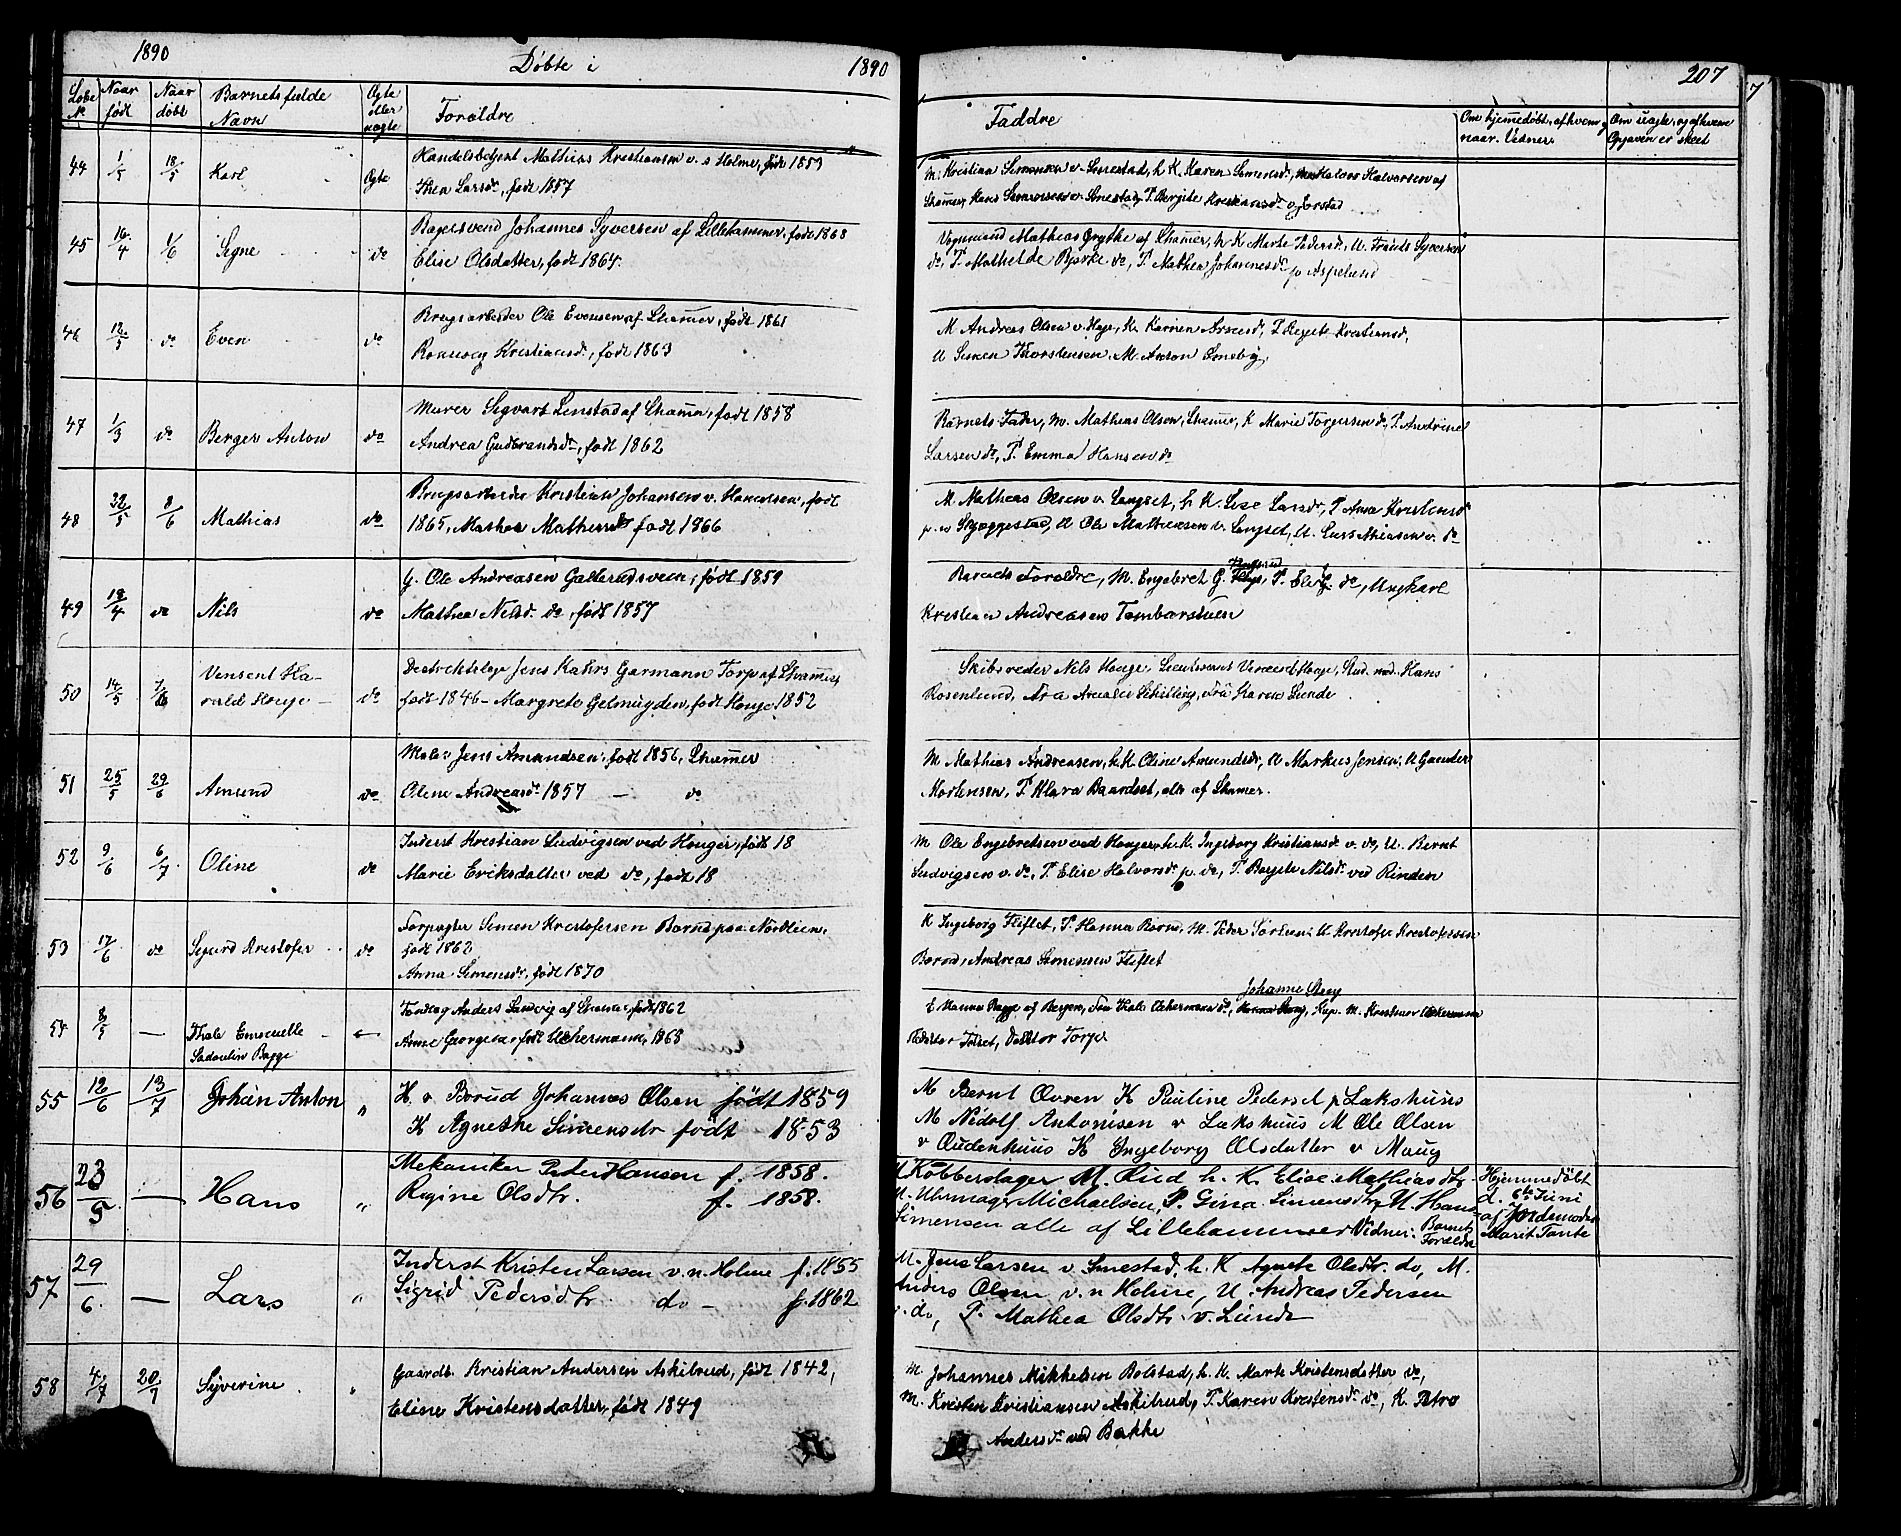 1890 Döbte i 1890
207
Löbe No
Naar født
Naar döbt
Barnets fulde Navn
Ægte eller uægte
Forældre
Faddre
Om hjemmedöbt, af hvem og naar. Vidner.
Om uægte, og af hvem Opgaven er skeet
44 1/5 18/5 Karl Ægte Handelsbetjent Mathias Kristiansen v. s Holme, født 1859
Thea Larsdr, født 1857
M. Kristian Simensen v. Smestad, h. K. Karen Simensdr, M Halvor Halvorsen af
Lhamer, Hans Simensen v. Smestad, P. Bergite Kristiansdr v. Jorstad
45 16/4 1/6 Signe do Bagersvend Johannes Syversen af Lillehammer, født 1868
Elise Olsdatter, født 1864.
Vognmand Mathias Grytke af Lhamer, h. K Marte Pedersdr, U. Frants Syversen
do, P. Mathilde Bjørke do, P. Mathea Johannesdr p. Aspelund
46 12/5 do Even do Brugsarbeider Ole Evensen af Lhamer, født 1861
Rønnaug Kristiansdr, født 1863
M Andreas Olsen v. Hage, K. Karnen Arnesdr, P Birgite Kristiansdr,
U Simen Thorstensen, M. Anton Smeby,
47 1/3 do Berger Anton do Murer Sigvart Linstad af Lhamer, født 1858
Andrea Gudbrandsdr, født 1862
Barnets Fader, M. Mathias Olsen, Lhamer, K Marie Torgersen do, P. Andrine
Larsen do, P. Emma Hansen do
48 22/5 8/6 Mathias do Brugsarbeider Kristian Johansen v. Hammersen, født
1865, Mathea Mathiasdr født 1866
M Mathias Olsen v. Langset, h K. Lise Larsdr, P Anna Kristensdr
p. n Skjæggestad, U Ole Mathiasen v. Langset, U. Lars Mhiasen v. do
49 18/4 do Nils do G. Ole Andreasen Gallerudsveen, født 1859
Mathea Nilsdr do, født 1857
Barnets Forældre, M. Engebret G. Flugs, P. Eli G. do, Ungkarl
Kristian Andreasen Tombarstuen
50 14/5 7/6 Vinsent Ha-
rald Houge do Distriktslæge Jens Kahrs Garmann Torp af Lhamer
født 1846 - Margrete Gelmuyden, født Houge 1852
Skibsreder Nils Houge, Lieutenant Vincent Houge, Stud. med. Hans
Rosenlund, Fru Amalie Schilling, Fru Karen Lunde.
51 25/5 29/6 Amund do Maler Jens Amundsen, født 1856, Lhamer
Oline Andreasdr 1857 - do
M Mathias Andreasen, h. K. Oline Amundsdr, U Markus Jensen, U Gunder
Mortensen, P. Klara Baardset, alle af Lhamer.
52 9/6 6/7 Oline do Inderst Kristian Ludvigsen ved Houger, født 18
Marie Eriksdatter ved do, født 18
M Ole Engebretsen ved Houger, h. K. Ingeborg Kristiansdr v. do, U. Bernt
Ludvigsen v. do, P. Elise Halvorsdr p. do, P. Birgite Nilsdr ved Rinden
53 17/6 do Sigurd Kristofer do Forpagter Simen Kristofersen Borud paa Nordlien,
født 1862
Anna Simensdr, født 1870
K Ingeborg Fliflet, P. Hanna Borud, M. Peder Sørlien, U Kristofer Kristofersen
Borud, Andreas Simensen Fliflet
54 8/5 - Thale Emanuelle
Sadoulin Bagge - Fondseg Anders Ludvig af Lhamer, født 1862
Anne Georgine, født Uckermann, 1868
Johanne Steeg
E Hanna Bagge af Bergen, Frøken Thale Uckermann do, Kap. M. Kristian Uckermann
Rektor Tolset, Doktor Torp.
55 12/6 13/7 Johan Anton " H. v. Borud Johannes Olsen født 1859
K Agnethe Simensdr født 1853
M Bernt Øvren K Pauline Pedersd p Lakshuus
M Nidolf Antonisen v Lakshuus M Ole Olsen
v Audenhuus K Ingeborg Olsdatter v Maug
56 23/5 - Hans " Mekaniker Peter Hansen f. 1858.
Regine Olsdtr. f. 1858.
M Kobberslager M. Rud h. K. Elise Mathiasdtr.
M. Uhrmager Michaelsen, P. Gina Simensdtr, U. Hans
Simensen alle af Lillehammer Vidner: Barnets Forældre
Hjemmedöbt
d. 6te Juni
af Jordemoder
Marit Tante
57 29/6 - Lars " Inderst Kristen Larsen v. n. Holme f. 1855
Sigrid Pedersdtr. do - f. 1862
M. Jens Larsen v. Smestad, h. K Agnete Olsdtr. do, M.
Anders Olsen v. n Holme, U. Andreas Pedersen
v. do, P. Mathea Olsdtr. v. Lunde
58 4/7 20/7 Syverine " Gaardb. Kristian Andersen Askilrud, født 1842,
Eline Kristensdatter, født 1849
M. Johannes Mikkelsen Bolstad, h. K. Marte Kristensdatter do,
M. Kristen Kristiansen Askilrud, P. Karen Kristensdr do, K. Petra
Andersdr ved Bakke